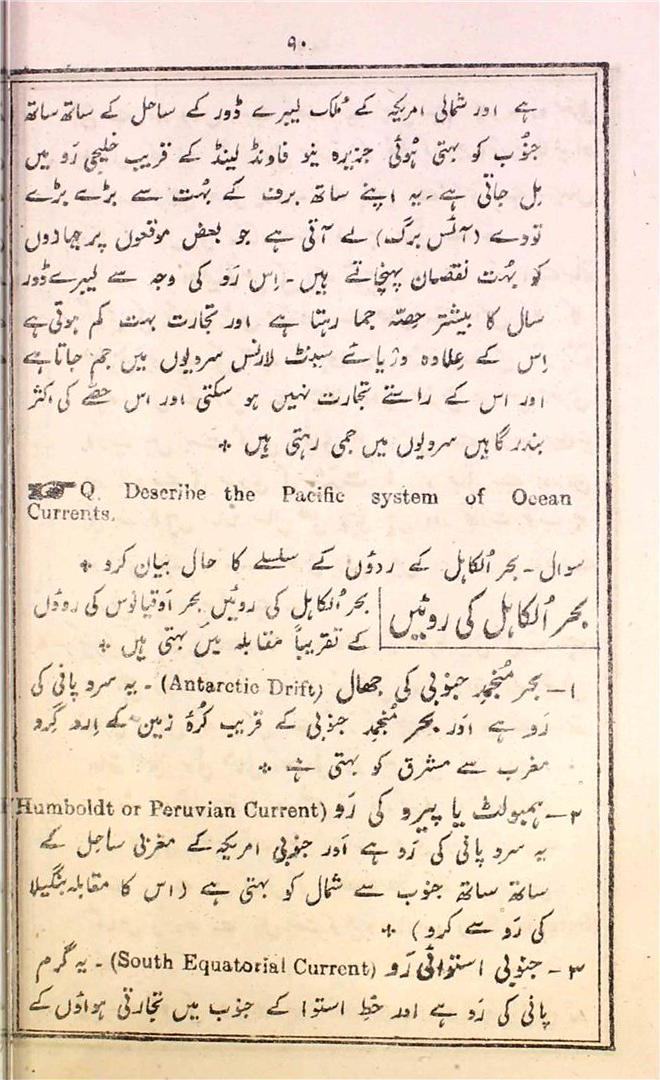 ۹۰
ہے اور شمالی امریکہ کے مُلک لیبرے ڈور کے ساحل کے ساتھ ساتھ
جنُوب کو بہتی ہُوئی جزیرہ نیو فاونڈ لینڈ کے قریب خلیجی رَو میں
مِل جاتی ہے۔ یہ اپنے ساتھ برف کے بہُت سے بڑے بڑے
تودے (آئس برگ) لے آتی ہے جو بعض موقعوں پر جہازوں
کو بہُت نقصان پہنچاتے ہیں۔ اِس رَو کی وجہ سے لیبرے ڈور
سال کا بیشتر حِصّہ جما رہتا ہے اور تجارت بہت کم ہوتی ہے
اِس کے عِلاوہ دریائے سینٹ لارنس سردیوں میں جم جاتا ہے
اور اس کے راستے تجارت نہیں ہو سکتی اور اس حِصّے کی اکثر
بندرگاہیں سردیوں میں جمی رہتی ہیں ٭
Q. Describe the Pacific system of Ocean
Currents.
سوال۔ بحر اُلکاہل کے رَوؤں کے سلسلے کا حال بیان کرو ٭
بحر اُلکاہل کی روئیں
بحر اُلکاہل کی روئیں بحر اَوقیانوس کی رَوؤں
کے تقریباً مقابلہ میں بہتی ہیں ٭
۱۔ بحر مُنجمِد جنوبی کی جھال (Antarctic Drift)۔ یہ سرد پانی کی
رَو ہے اَور بحر مُنجمِد جنوبی کے قریب کُرۂ زمین کے اِرد گِرد
مغرب سے مشرق کو بہتی ہے ٭
۲۔ ہمبولٹ یا پیرو کی رَو (Humboldt or Peruvian Current)
یہ سرد پانی کی رَو ہے اَور جنوبی امریکہ کے مغربی ساحل کے
ساتھ ساتھ جنوب سے شمال کو بہتی ہے (اس کا مقابلہ بنگیلا
کی رَو سے کرو) ٭
۳۔ جنوبی استوائی رَو (South Equatorial Current)۔ یہ گرم
پانی کی رَو ہے اور خطِ استوا کے جنوب میں تجارتی ہواؤں کے